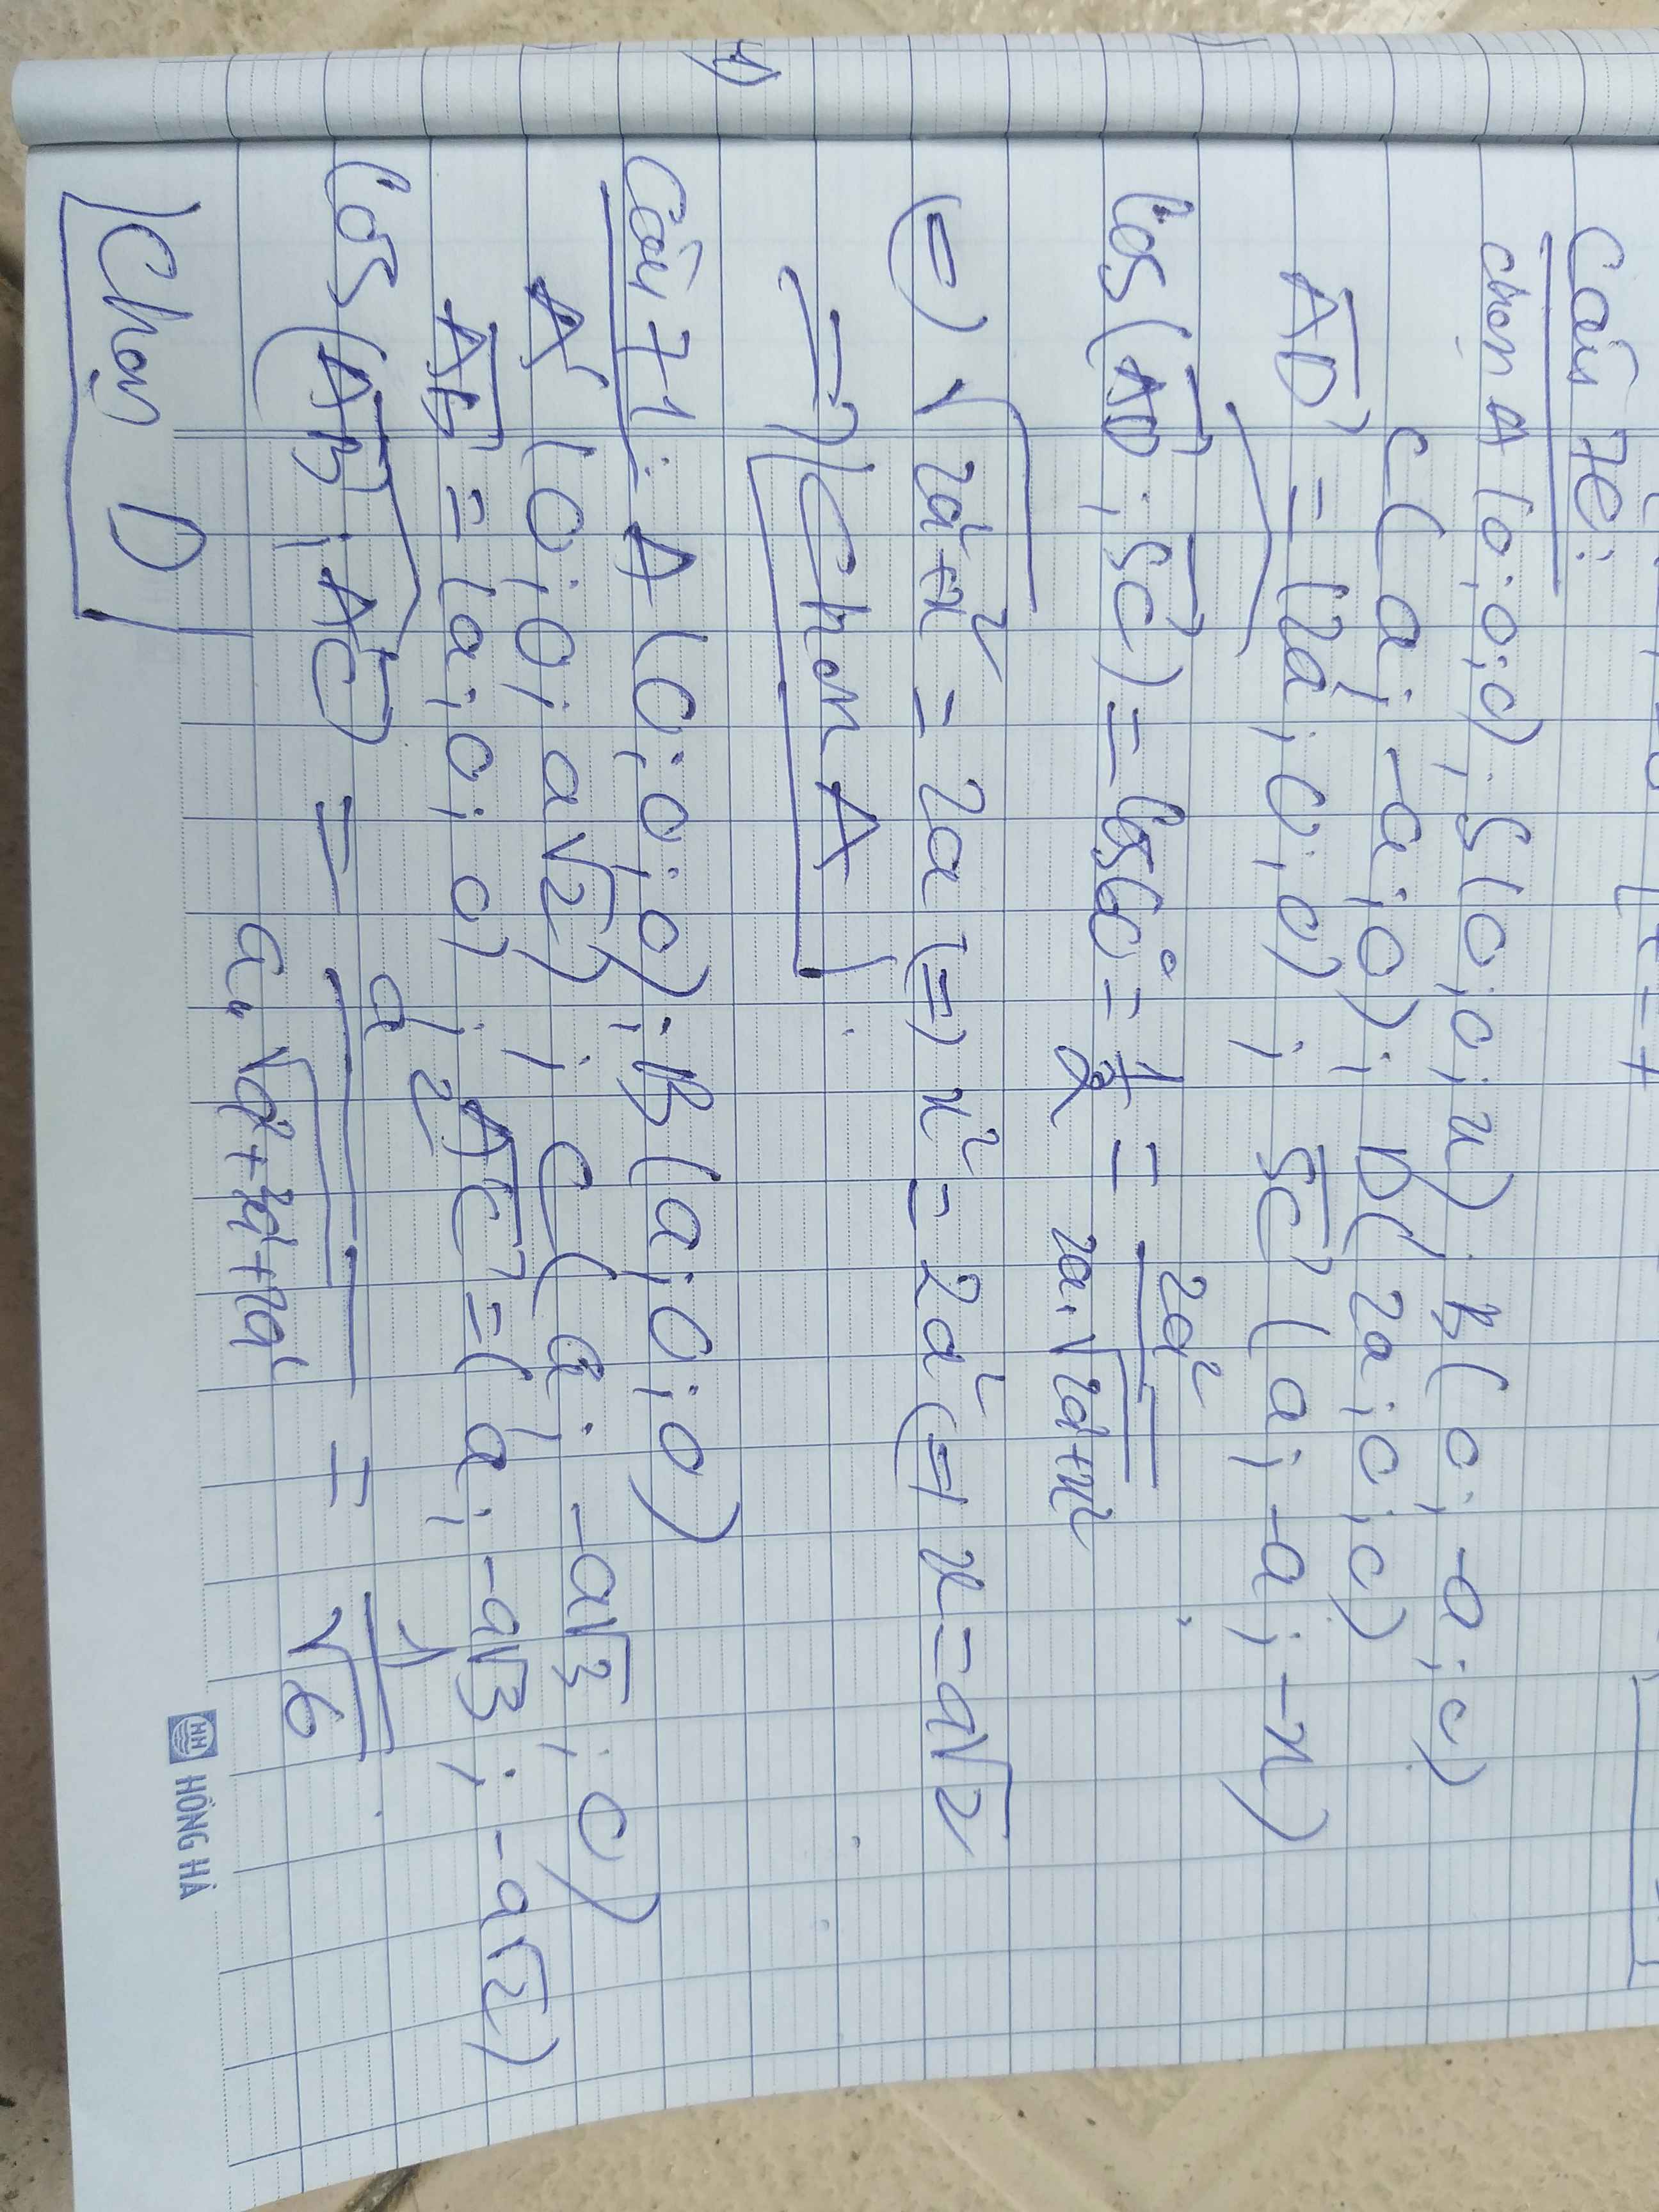 Câu 70:
chọn A (0;0;0); S(0;0;x). B(0;-a;0)
C(a;-a;0); D(2a;0;0)
AD = (2a;0;0); SC (a;-a;-x)
Cos(AD;SC) = Cos60° = 1/2 = 2a²/2a.√2a²+x²
(=) √2a²+x² = 2a (=) x² = 2a² (=) x=a√2
=> Chọn A
Câu 71: A (0;0;0); B(a;0;0)
A' (0;0;a√2); C(a;-a√3;0)
AB = (a;0;0); A'C = (a;-a√3;-a√2)
Cos(AB;A'C) = a²/a.√a²+3a²+2a² = 1/√6
Chọn D
HH HỒNG HÀ